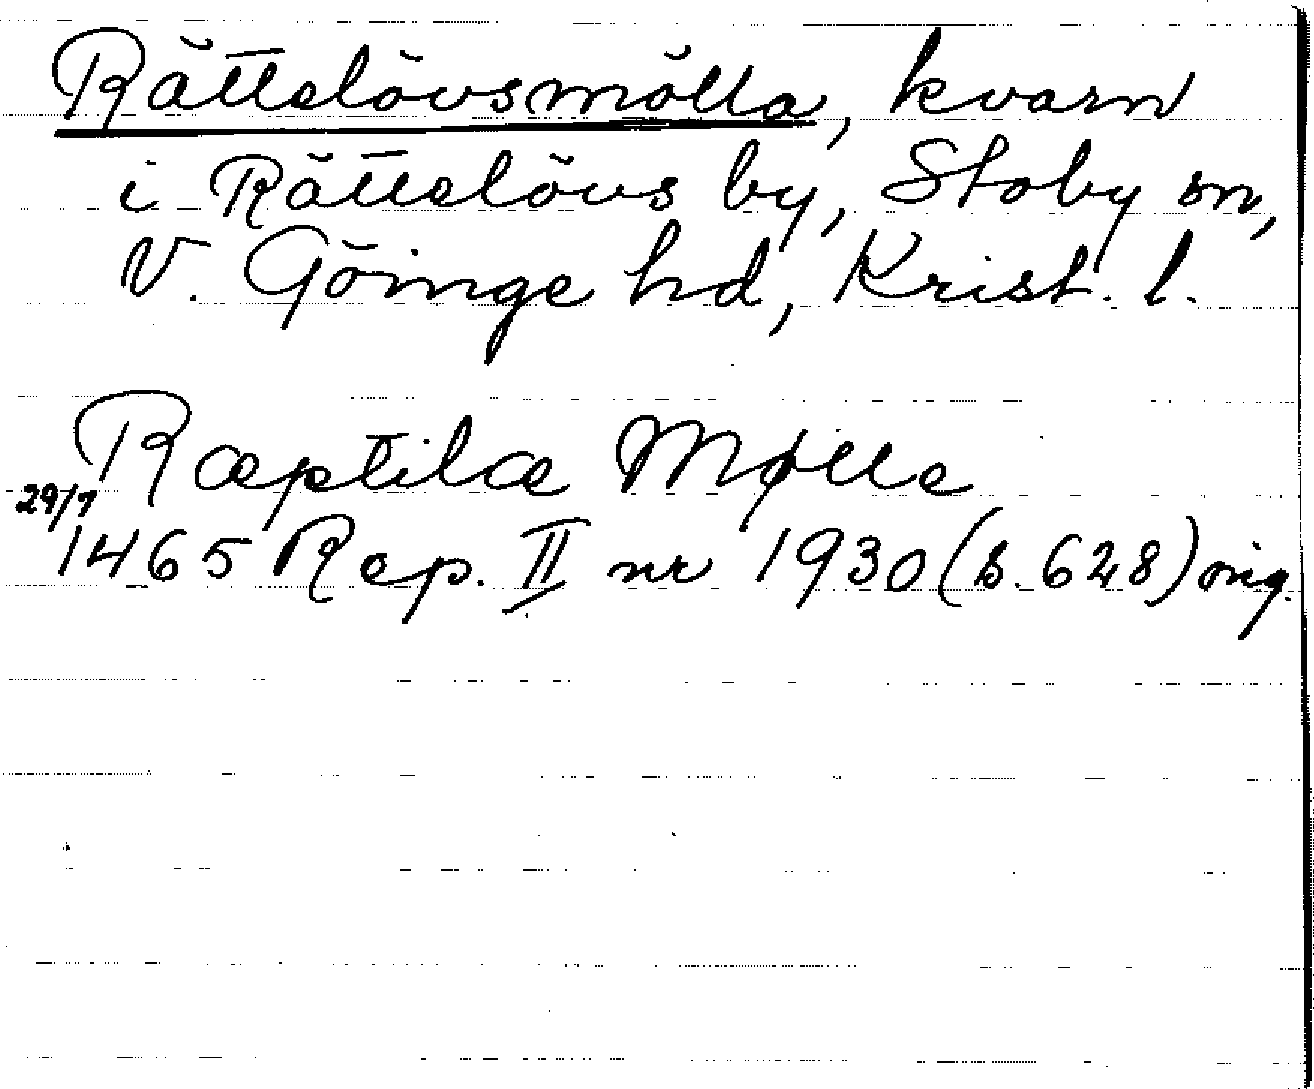 Rättelövsmölla, kvarn
i Rättelövs by, Stoby sn,
V. Göinge hd, Krist. l.
Ræptilæ Mølle
29/7
1465 Rep. II nr 1930 (s. 628) orig.